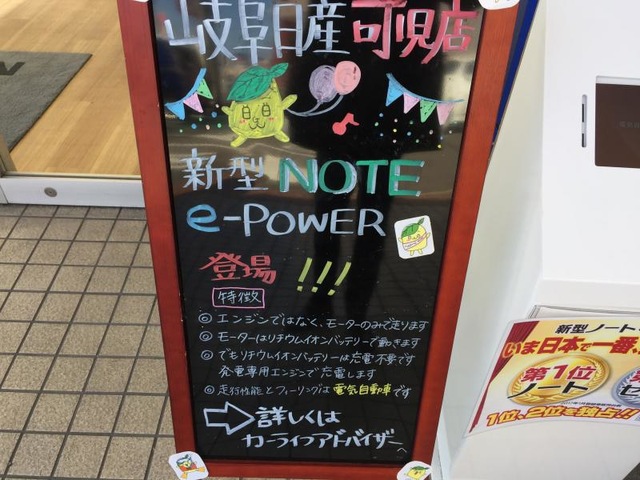 岐阜日産可児店
新型 NOTE
e-POWER
登場!!!
特徴
◎エンジンではなく、モーターのみで走ります
◎モーターはリチウムイオンバッテリーで動きます
◎でもリチウムイオンバッテリーは充電不要です
発電専用エンジンで充電します
◎走行性能とフィーリングは電気自動車です
詳しくは
カーライフアドバイザーへ
新型ノート
いま日本で一番
第1位
ノート
1位、2位を独占!!